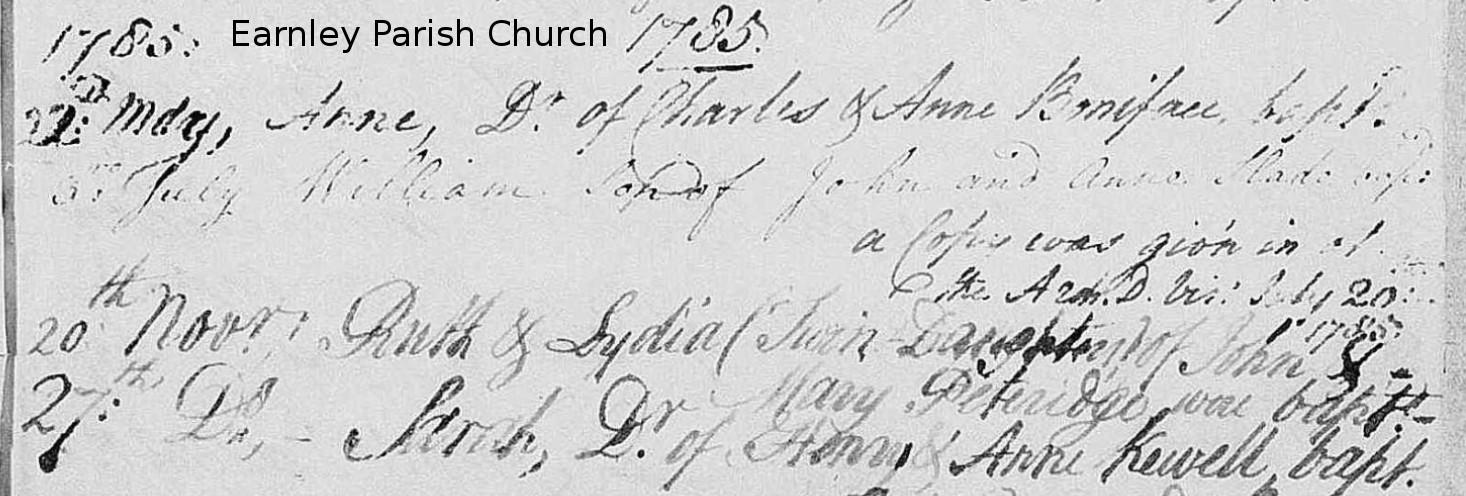 1785: Earnley Parish Church 1785.
22d: May, Anne, Dr. of Charles & Anne Boniface, bapt.
July William Son of John and Anne Slade bapt:
a Copy was giv'n in at
the Arch. D. Vis: July 20:
1785
20th Novr: Ruth & Lydia (Twin-Daughters) of John &
Mary Peteridge were bapt.
27th: Do, - Sarah, Dr. of Henry & Anne Kewell, bapt.